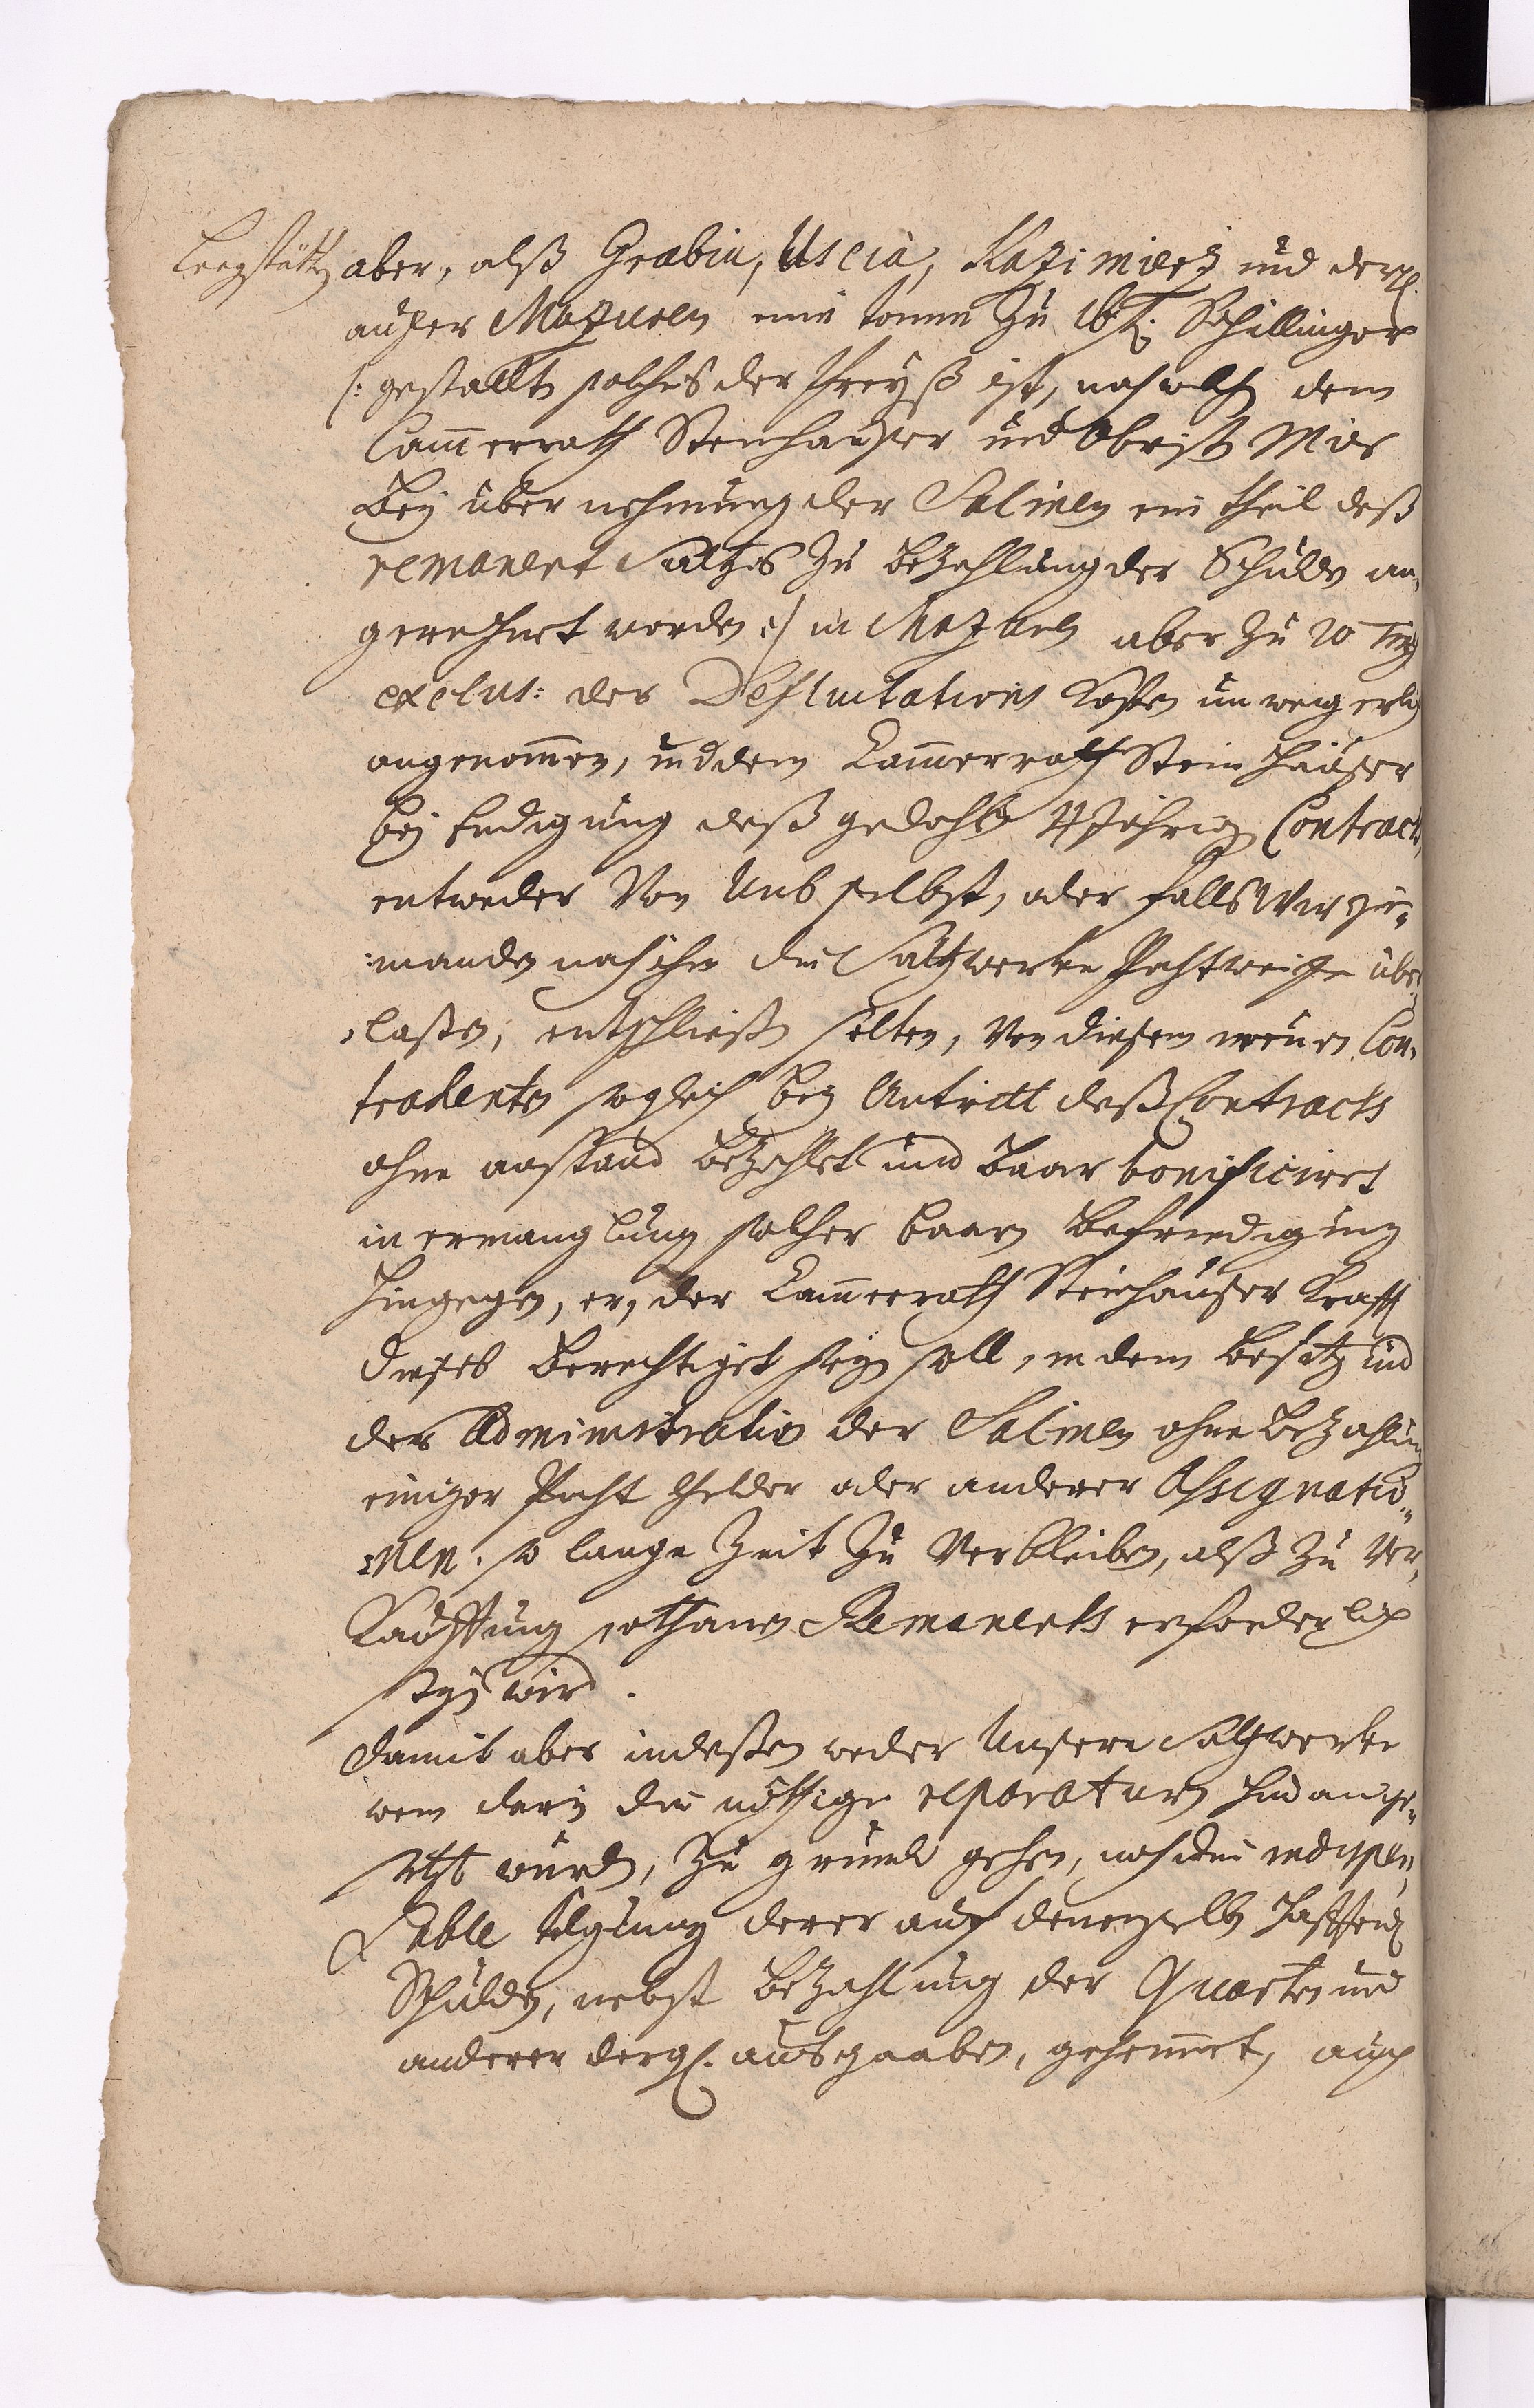 Leegstätten aber, alß Grabie, Uscia, Kazimierz und dergl.
außer Mazuren eine tonne zu 16 fl. Schillinger
/: gestallten solches der Preyß ist, nach welchen dem
Cammerrath Steinhauser und Obrist Mier
Bey übernehmung der Salinen ein theil deß
remanent Saltzes zu bezahlung der Schulden an-
gerechnet worden :/ in Mazuren aber zu 20 Tmpf
exclus: der Defluitations Kosten unweigerlich
angenommen, und dem Cammerrath Steinhäuser
bey Endigung deß gedachten 4 Jährigen Contracts,
entweder Von Unß selbst, oder falls Wir je-
manden nach ihm die Saltzwercke Pachtweise über-
laßen, entschließen solten, Von diesem neuen Con-
trahenten sogleich bey Antritt deß Contracts
ohne anstand bezahlet und baar bonificiret
in ermanglung solcher baaren Befriedigung
hingegen, er, der Cammerrath Steinhäuser Krafft
dieses berechtiget seyn soll, in dem Besitz und
der Administration der Salinen ohne Bezahlung
einiger Pacht Gelder oder anderer Assignatio-
nen. so lange Zeit zu Verbleiben, alß zu Ver-
Kauffung sothanen Remanents erforderlich
seyn wird.
Damit aber indeßen weder Unsere Saltzwercke
wen darin die nöthige reparaturen hindange-
setzt würden, zu grunde gehen, noch die indispen-
sable tilgung derer auf denenselben hafftenden
Schulden, nebst bezahlung der Quarten und
anderer dergl. ausgaaben, gehemmet, auch